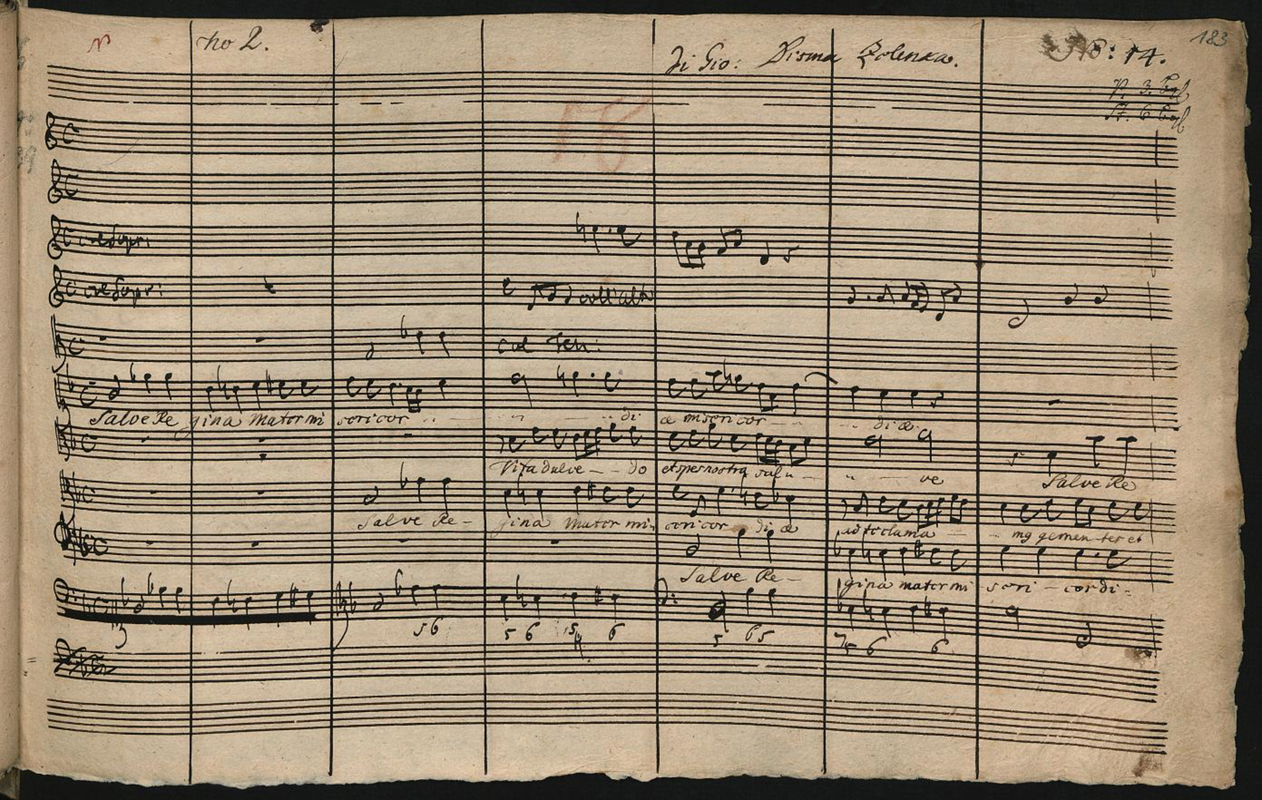 no 2. di Gio: Disma Zelenka. No: 14. 183
col Sopr:
col Sopr: coll'alto
col Ten:
Salve Re gina Mater mi sericor - di æ misericor - - di æ
Vita dulce - - do et spes nostra salu - - - ve Salve Re
Salve Re - gina Mater mi- sericor di æ ad te clama - - mg gemen tes et
Salve Re - gina mater mi seri - cordi -
5 6 5 6 5 6 5 6 5 6 6